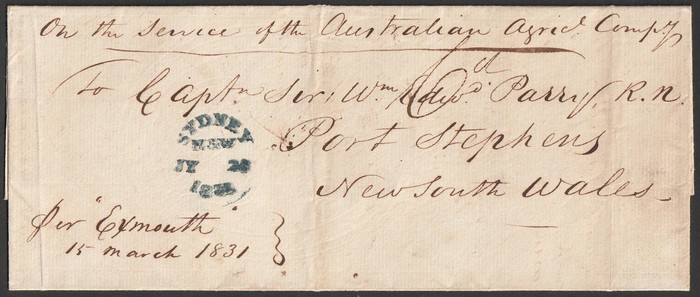 On the Service of the Australian Agricl. Compy.
To Captn. Sir Wm. Edwd. Parry, R.N.
&c
Port Stephens
New South Wales
SYDNEY
N.S.W
JY 26
per "Exmouth"
15 march 1831